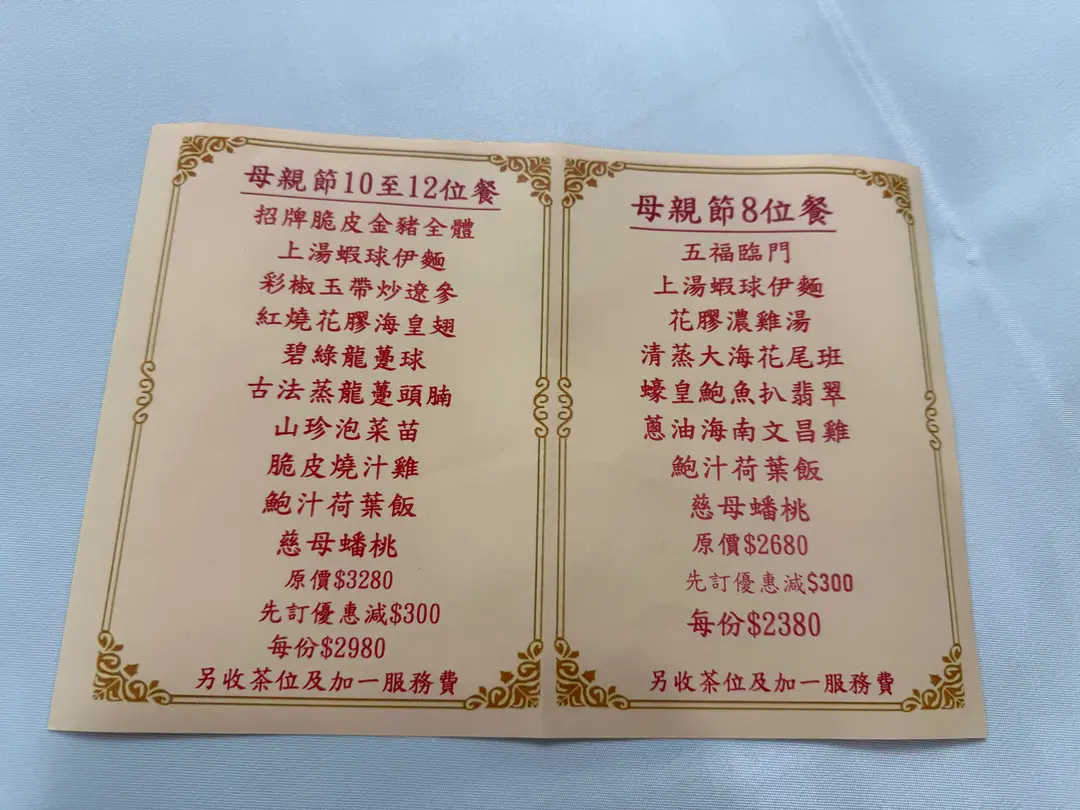 母親節10至12位餐
招牌脆皮金豬全體
上湯蝦球伊麵
彩椒玉帶炒遼參
紅燒花膠海皇翅
碧綠龍躉球
古法蒸龍躉頭腩
山珍泡菜苗
脆皮燒汁雞
鮑汁荷葉飯
慈母蟠桃
原價$3280
先訂優惠減$300
每份$2980
另收茶位及加一服務費
母親節8位餐
五福臨門
上湯蝦球伊麵
花膠濃雞湯
清蒸大海花尾班
蠔皇鮑魚扒翡翠
蔥油海南文昌雞
鮑汁荷葉飯
慈母蟠桃
原價$2680
先訂優惠減$300
每份$2380
另收茶位及加一服務費